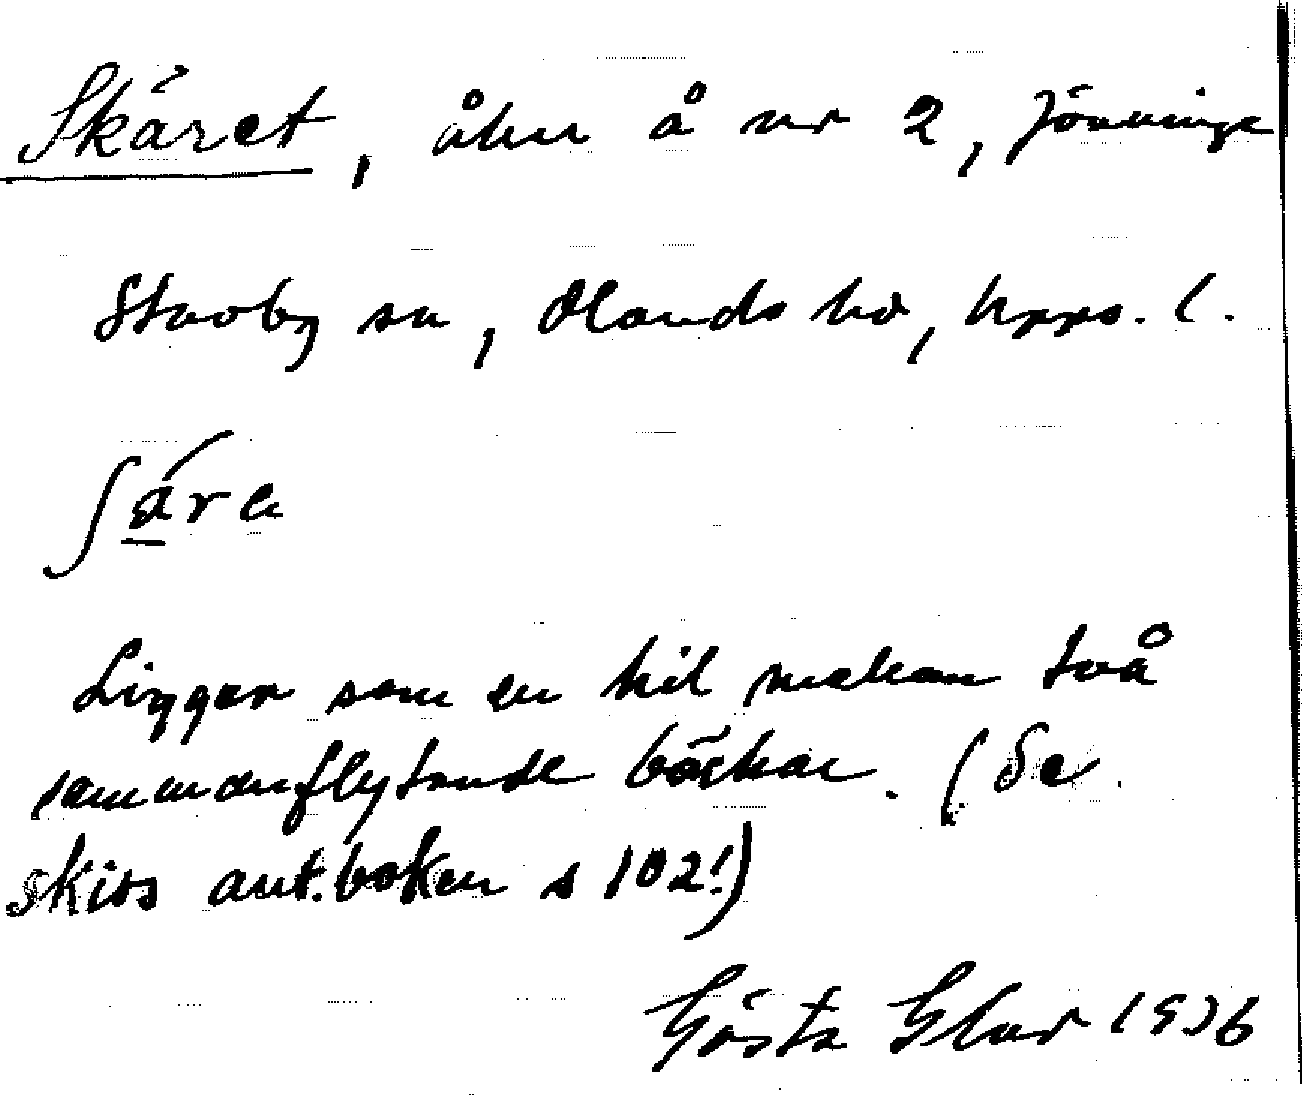 Skäret, åker å nr 2, Jönninge
Stavby sn, Olands hd, Upps. l.
ʃära
Ligger som en kil mellan två
sammanflytande bäckar. (Se
skiss ant.boken s 102!)
Gösta Glar 1936